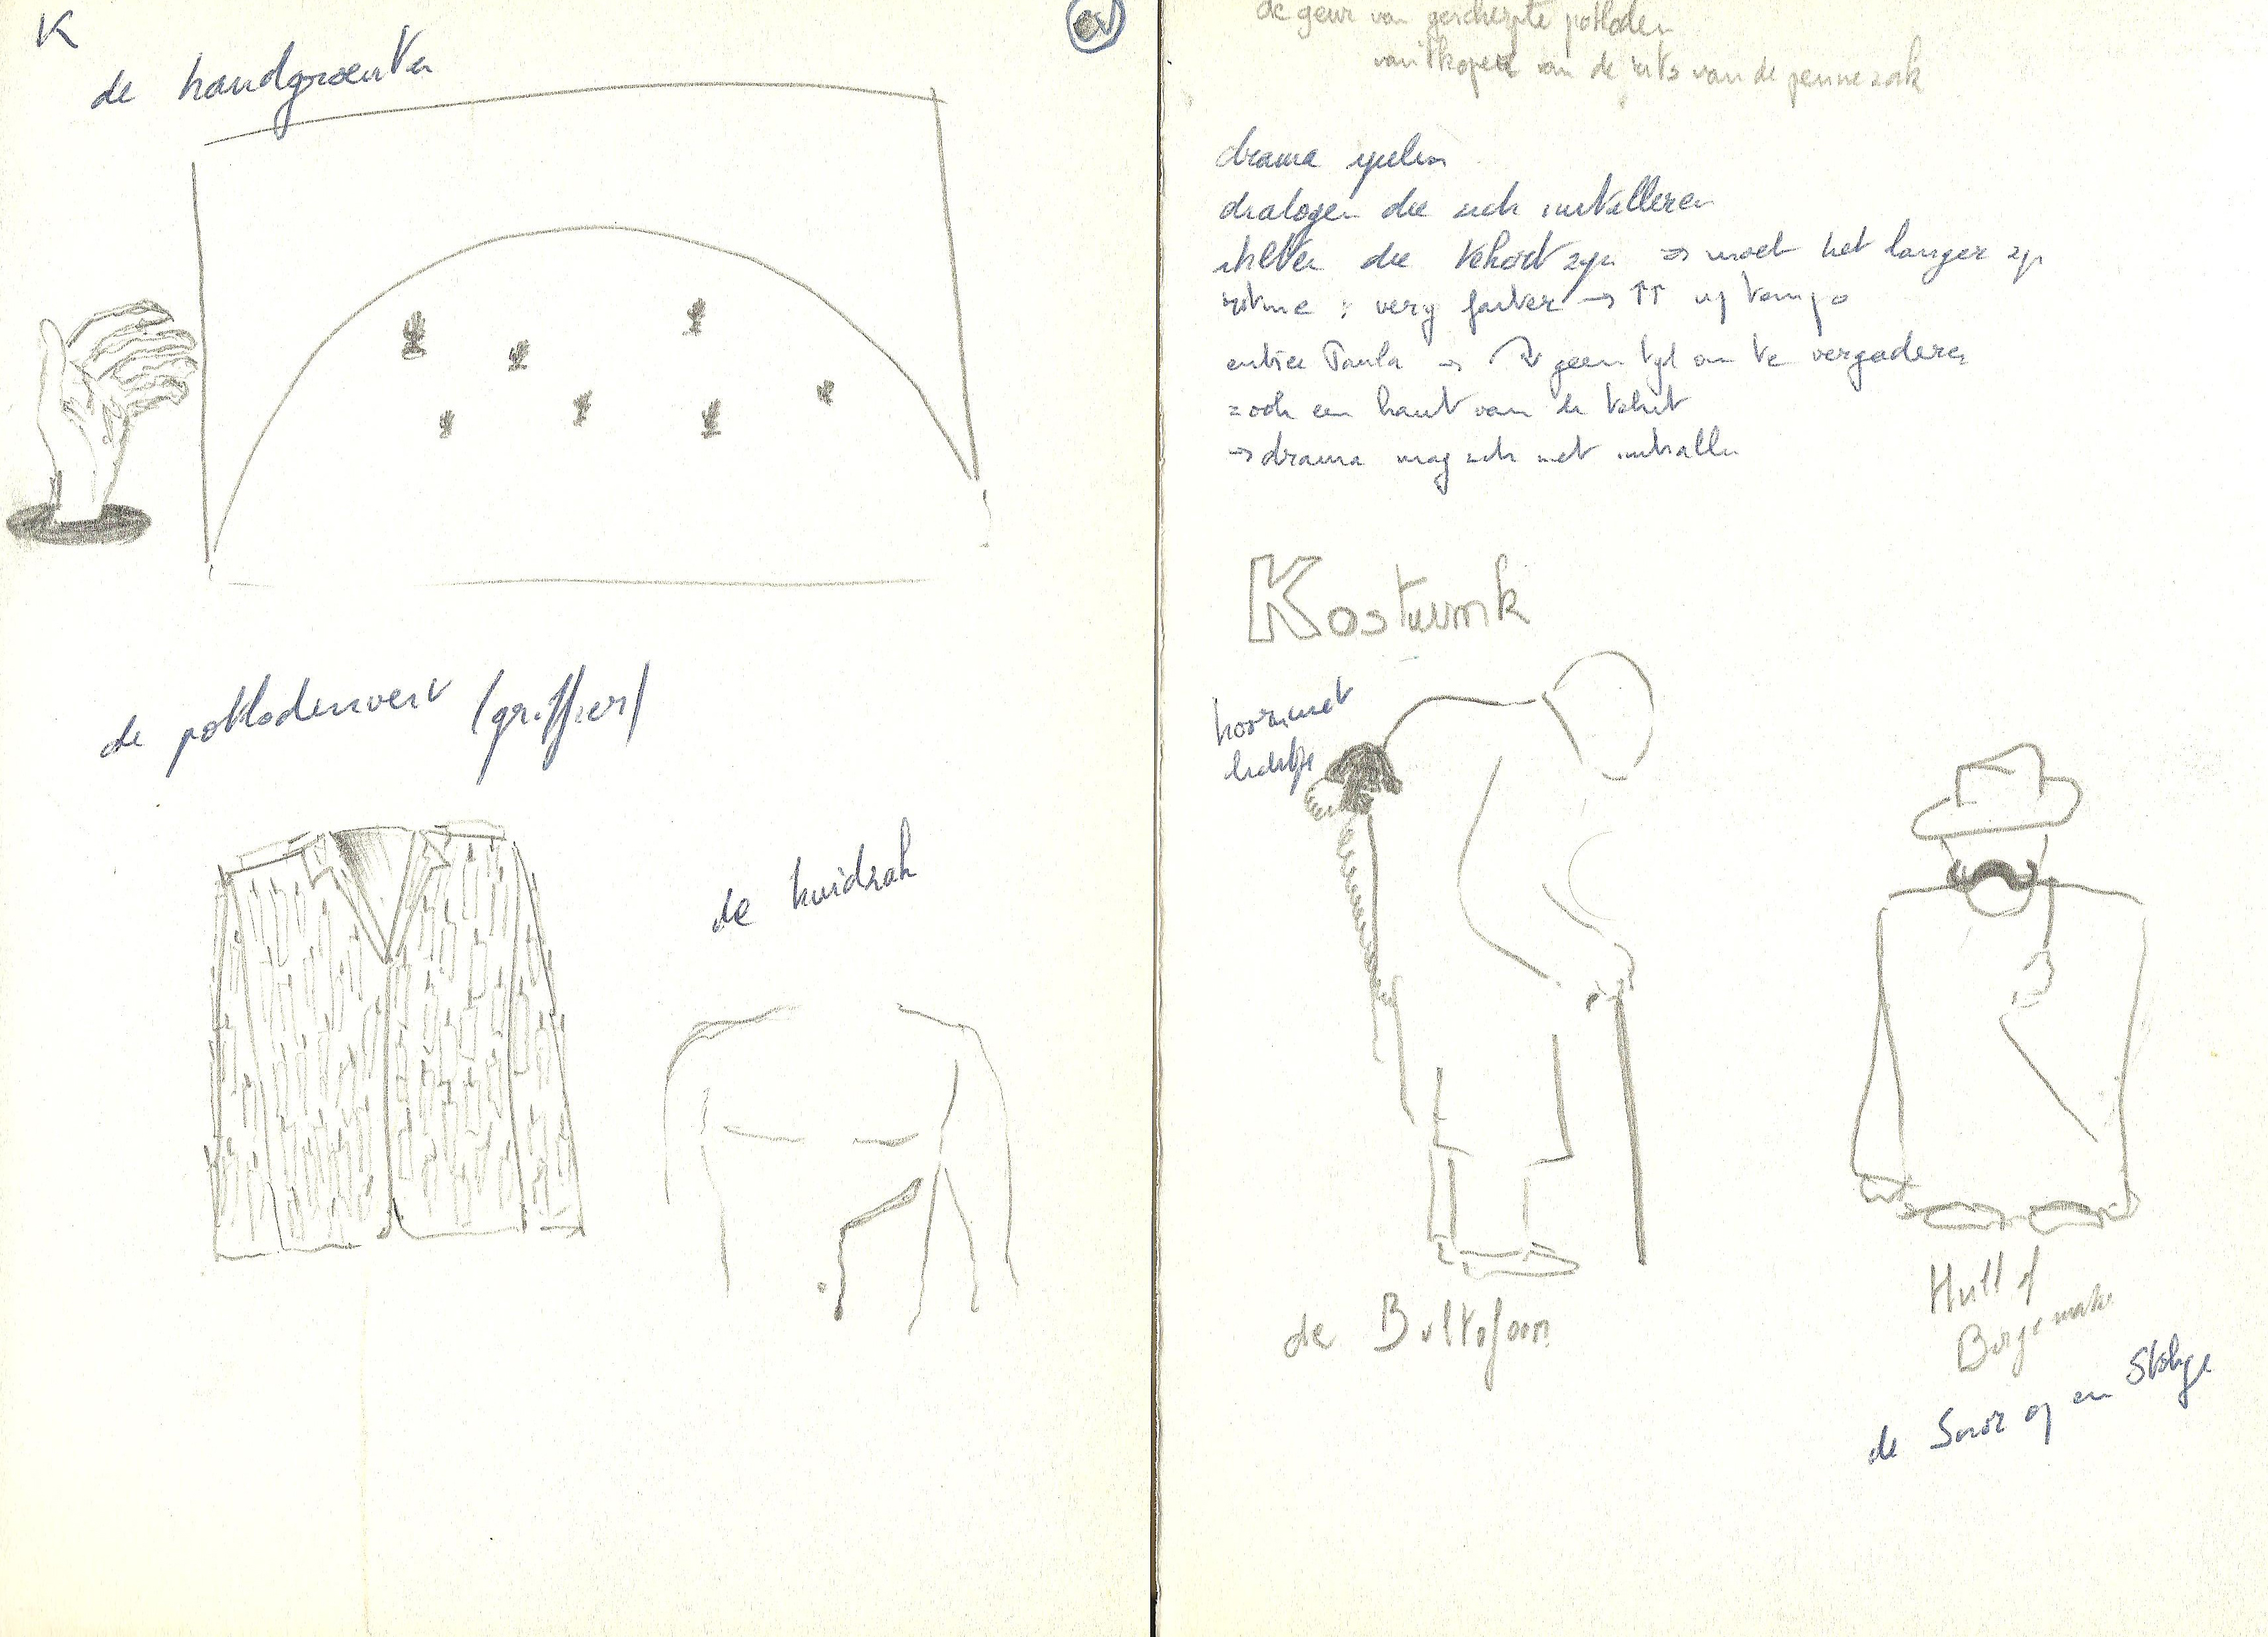 K
de handgroenten
de potlodenvest (griffier)
de huidzak
de geur van gescherpte potloden
van de rits van de pennezak
drama spelen
dialogen die zich installeren
die tekort zijn → moet het langer zijn
ritme : very faster → ↑↑ up tempo
entree Paula → geen tijd om te vergaderen
zoek een haut van de tekst
→ drama mag zich niet installen
Kostuumk
hoorn met
lichtje
de Bultofoon
Hull of
Burgemeester
de Snor op een Stokje